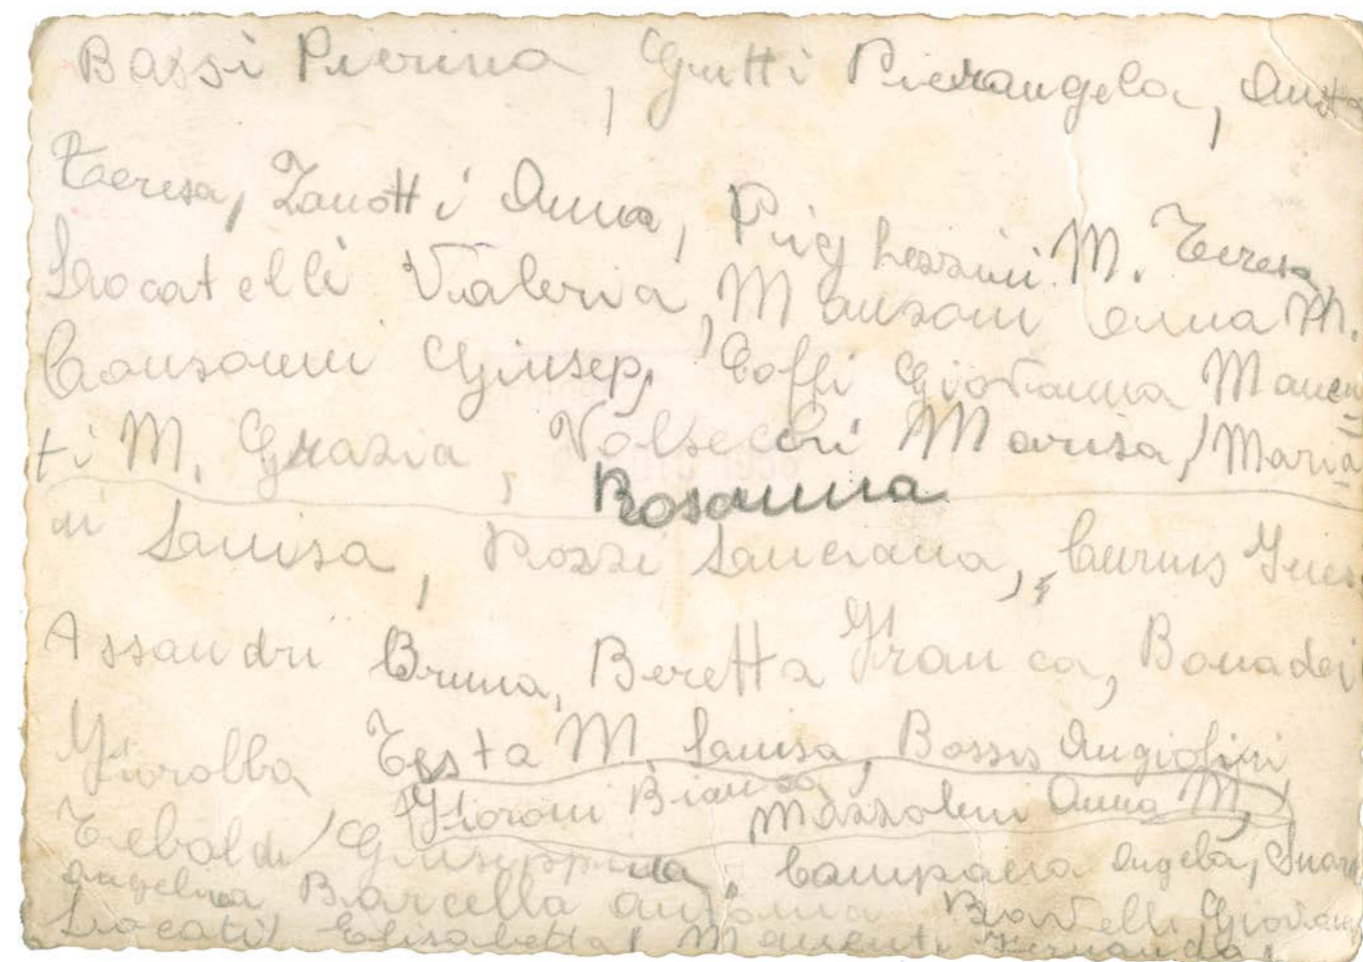 Bassi Pierina, Giutti Pierangela,
Teresa, Zanotti Anna, Pighezzini M. Teresa
Locatelli Valeria, Manzoni Anna M.
Consonni Giusep, Goffi Giovanna Manen
ti M. Grazia, Valsecchi Marisa, Maria
Rosanna
ni Lauisa, Rozzi Lauciana, Curnis Ines
Assandri Bruna, Beretta Franca, Bonadei
Fioralba Testa M. Lauisa, Bossis
Fioroni Bianca, Mazzoleni Anna M,
Tebaldi Giuseppina, Campana Angela,
Angelina Barcella Antonia Bravelli
Locati Elisabetta, Manenti Fernanda,